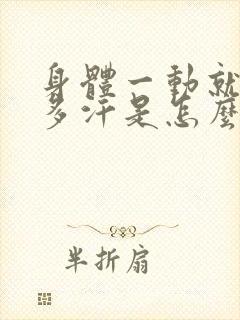 身體一動就
多汗是怎麼
半折扇